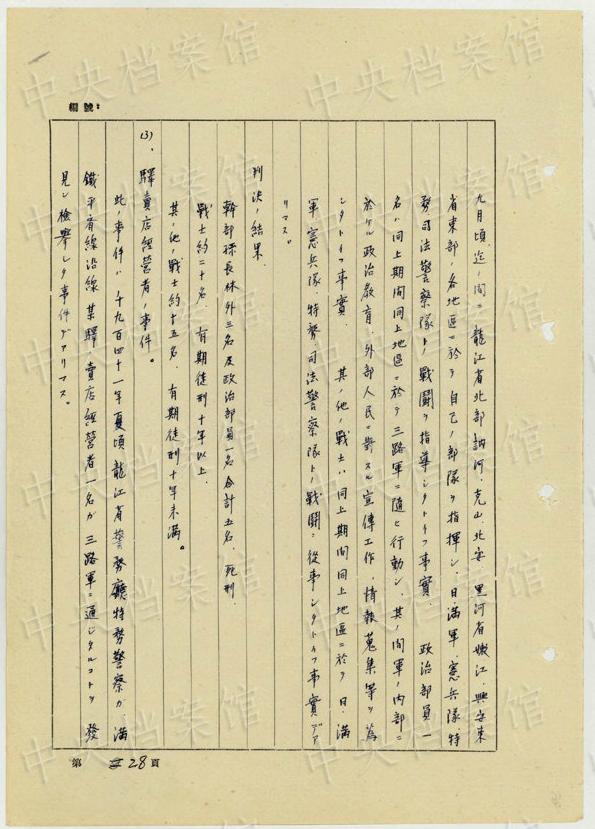 編號：
九月頃迄ノ間ニ龍江省北部訥河、克山、北安、黑河省嫩江、興安東
省東部ノ各地區ニ於テ自己ノ部隊ヲ指揮シ、日、滿軍、憲兵隊、特
務、司法警察隊トノ戰鬪ヲ指導シタトイフ事實、政治部員一
名ハ同上期間同上地區ニ於テ三路軍ニ隨ヒ行動シ、其ノ間軍ノ內部ニ
於ケル政治教育、外部人民ニ對スル宣傳工作、情報蒐集等ヲ為
シタトイフ事實、其ノ他ノ戰士ハ同上期間同上地區ニ於テ日、滿
軍、憲兵隊、特務、司法警察隊トノ戰鬪ニ從事シタトイフ事實デア
リマス。
判決ノ結果、
幹部孫長林外三名及政治部員一名合計五名、死刑、
戰士約二十名、有期徒刑十年以上、
其ノ他ノ戰士約十五名、有期徒刑十年未滿。
(3)、驛賣店經營者ノ事件。
此ノ事件ハ千九百四十一年夏頃龍江省警務廳特務警察ガ、滿
鐵平省線沿線某驛ノ賣店經營者一名ガ三路軍ニ通ジタルコトヲ發
見シ檢擧シタ事件デアリマス。
第 28 頁
中央档案馆
中央档案馆
中央档案馆
中央档案馆
中央档案馆
中央档案馆
中央档案馆
中央档案馆